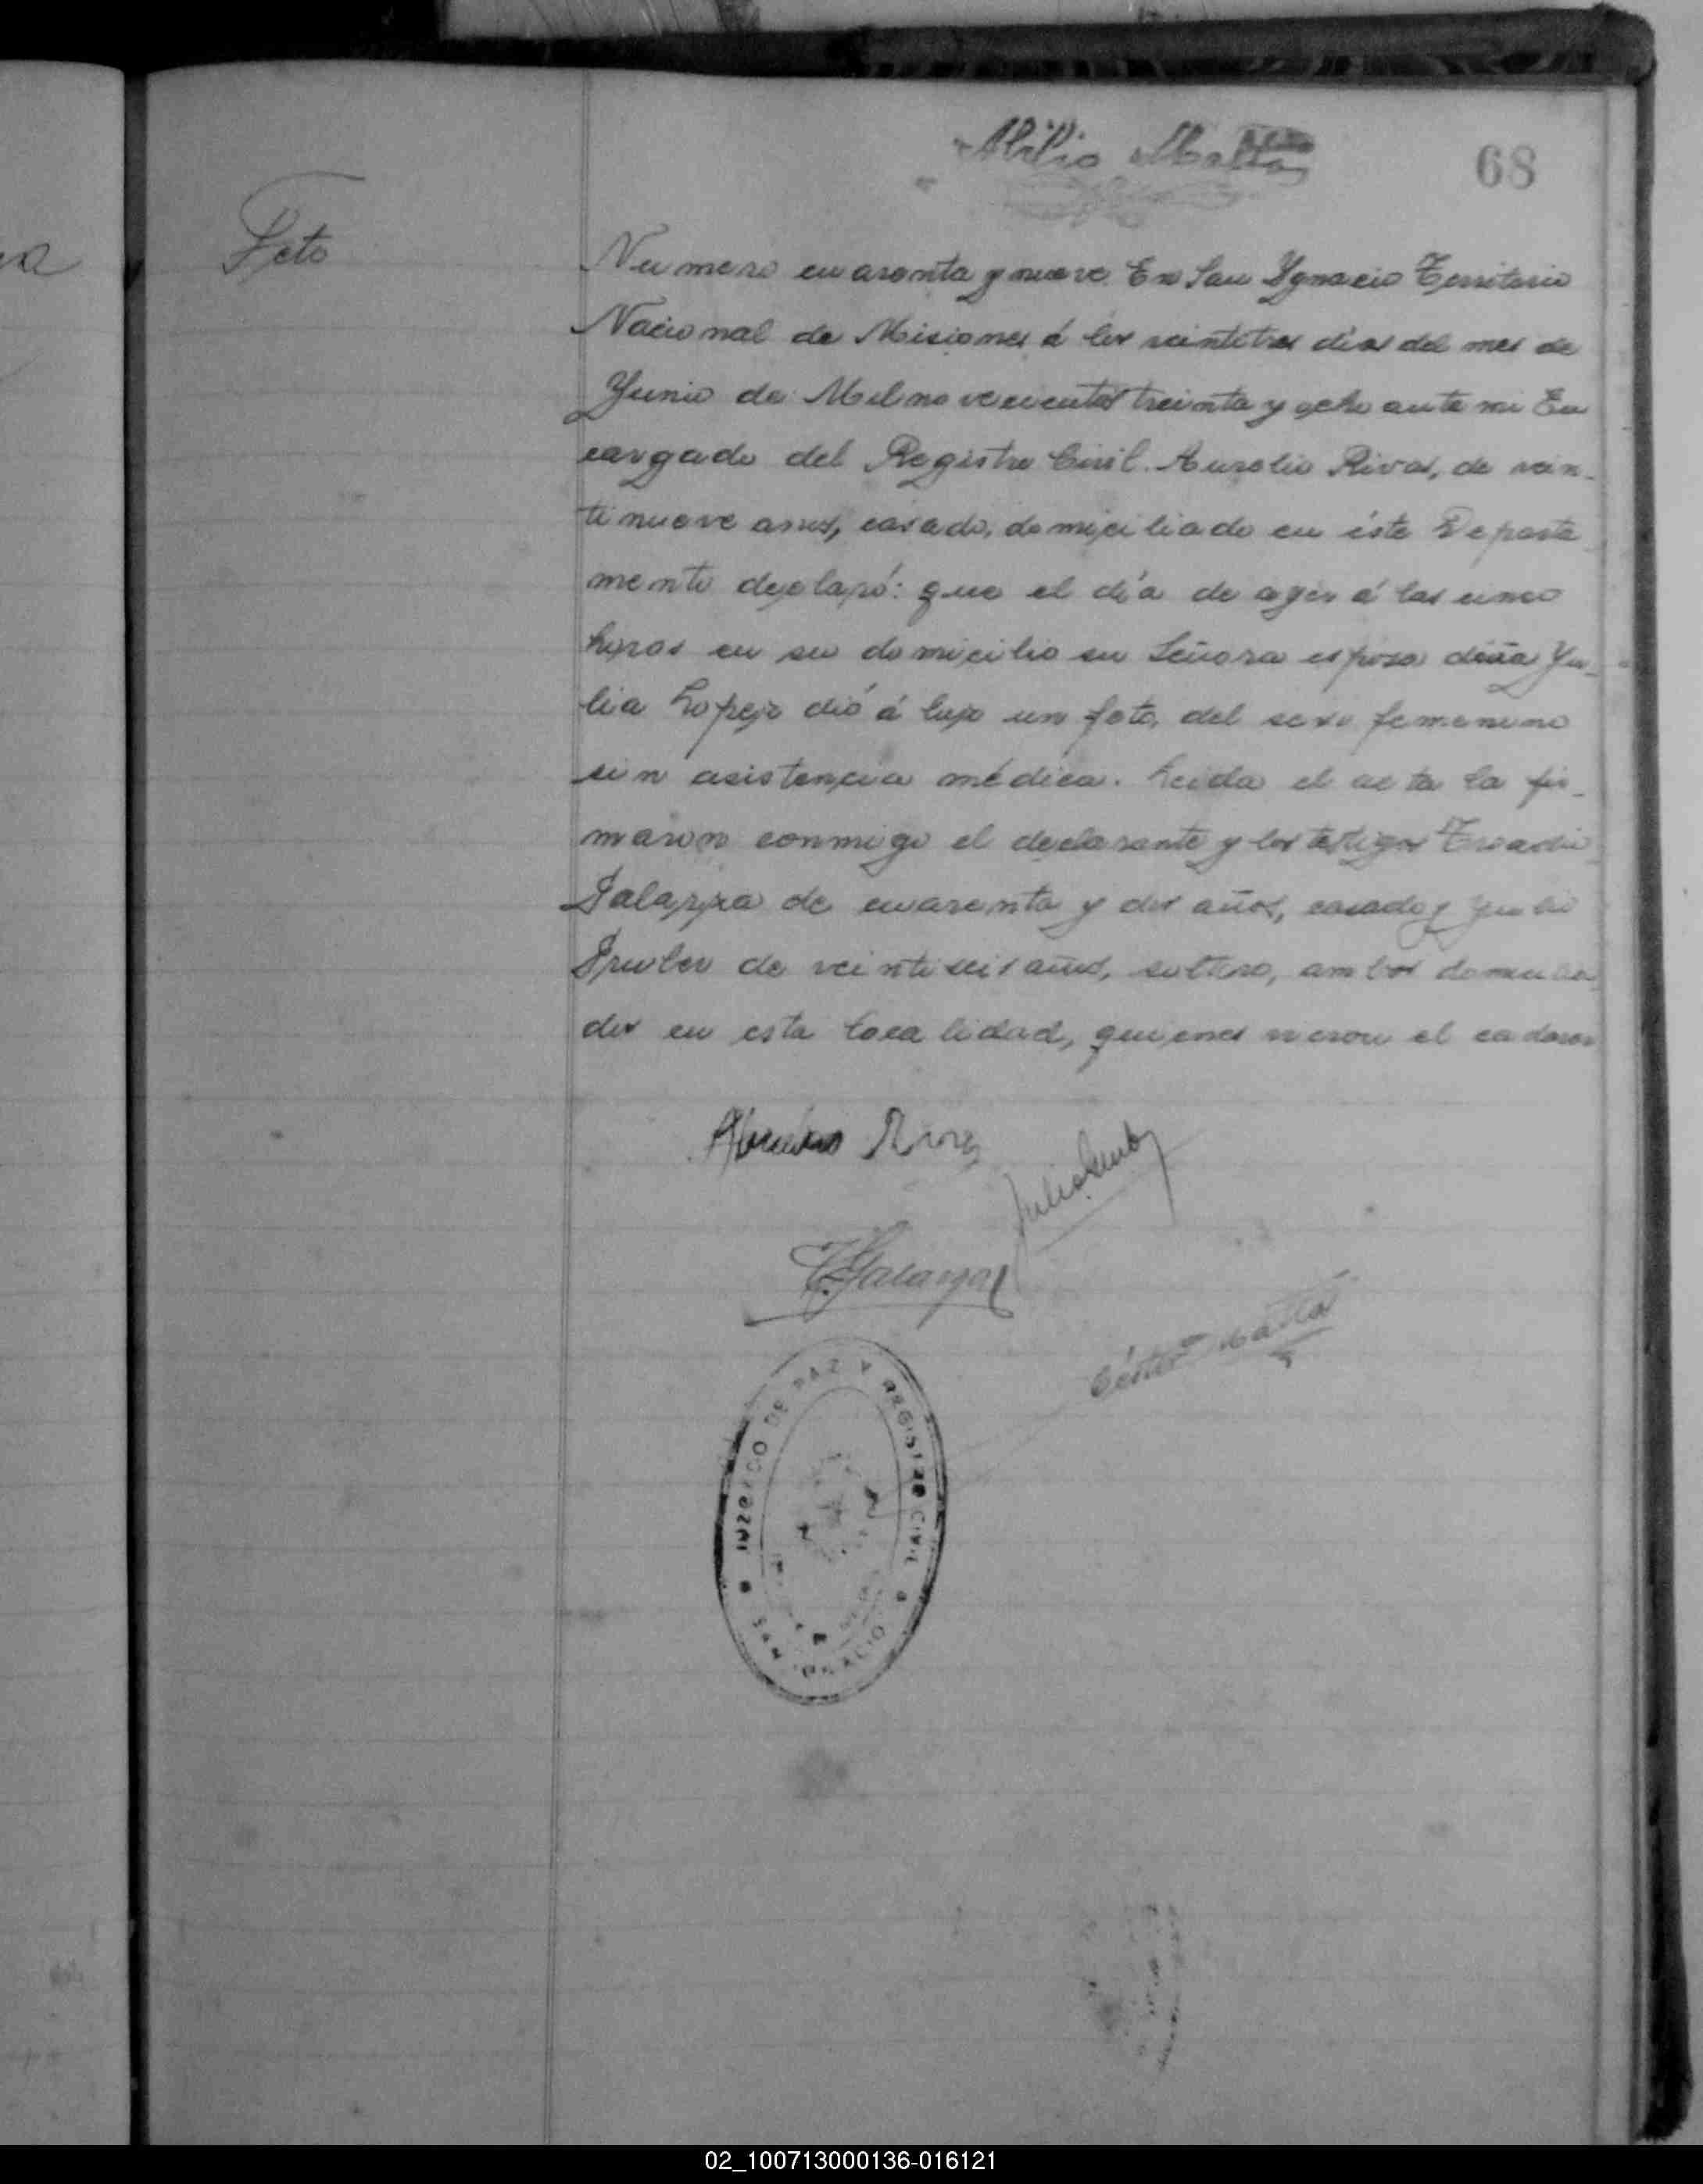 68
Feto
Numero cuarenta y nueve En San Ygnacio Territorio
Nacional de Misiones á los veintitres dias del mes de
Yunio de Mil novecientos treinta y ocho ante mi En
cargado del Registro Civil. Aurelio Rivas, de vein-
tinueve años, casado, domiciliado en éste Departa
mento declaró: que el día de ayer á las cinco
horas en su domicilio su Señora esposa doña Yu-
lia Lopez dió á luz un feto, del sexo femenino
sin asistencia médica. Leida el acta la fir-
maron conmigo el declarante y los testigos
Galarza de cuarenta y dos años, casado y Yulio
de veintiseis años, soltero, ambos domicilia
dos en esta localidad, quienes vieron el cadaver
Julio
Galarza
JUZGADO DE PAZ Y REGISTRO CIVIL
SAN IGNACIO
02_100713000136-016121